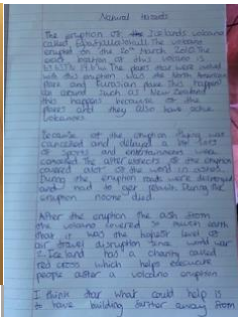 Natural hazards
The eruption of the Icelands volcano
called Eyjafjallajokull. The volcano
erupted on the 20th March 2010. The
exact location of this volcano is
The plates that were involved
with this eruption was the North American
plate and Eurasian plate. This happens
all around such as New Zealand
this happens because of the
plates and they also have active
volcanoes.
Because of the eruption flying was
cancelled and delayed a lot
of sports and entertainments were
cancelled. The after effects of the eruption
covered a lot of the world in ash.
During the eruption roads were destroyed
and had to get rebuilt. During the
eruption noone died
After the eruption the ash from
the volcano covered so much earth
that it was the highest level of
air travel disruption since world war
2. Iceland had a charity called
red cross which helps evacuate
people after a volcano eruption
I think that what could help is
to have building further away from